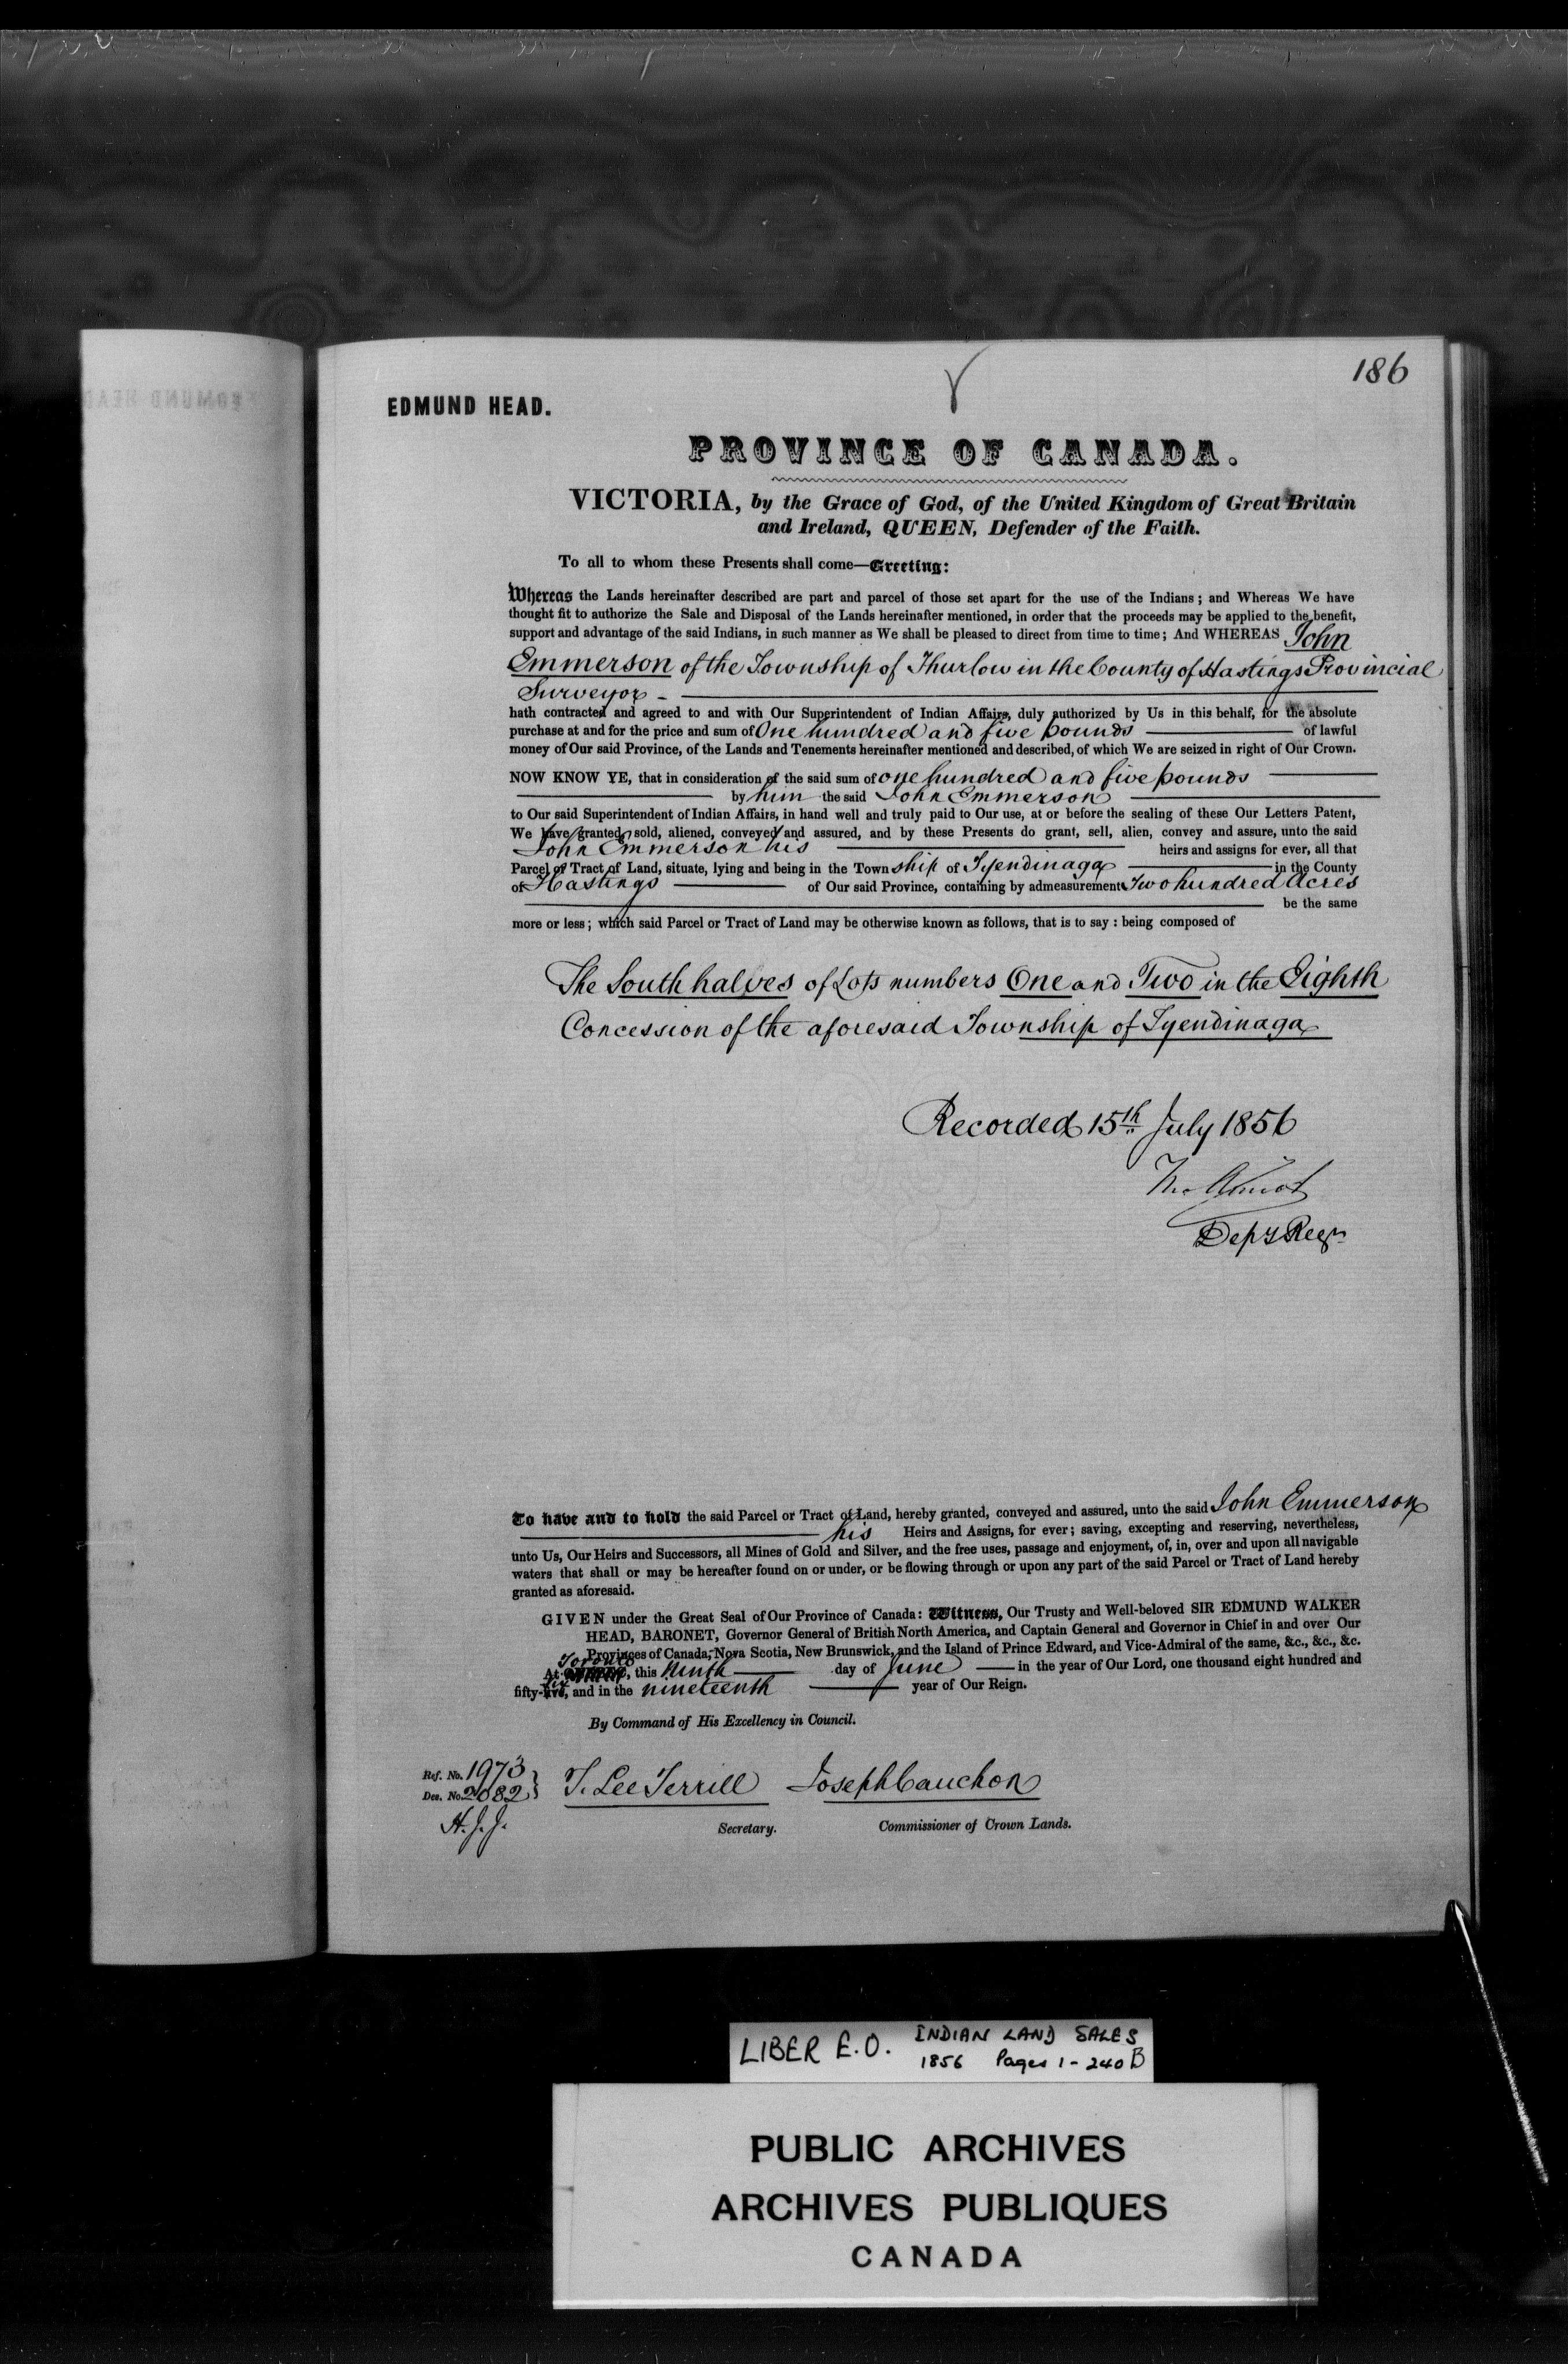 186
EDMUND HEAD.
PROVINCE OF CANADA.
VICTORIA, by the Grace of God, of the United Kingdom of Great Britain
and Ireland, QUEEN, Defender of the Faith.
To all to whom these Presents shall come—Greeting:
Whereas the Lands hereinafter described are part and parcel of those set apart for the use of the Indians; and Whereas We have
thought fit to authorize the Sale and Disposal of the Lands hereinafter mentioned, in order that the proceeds may be applied to the benefit,
support and advantage of the said Indians, in such manner as We shall be pleased to direct from time to time; And WHEREAS John
Emmerson of the Township of Thurlow in the County of Hastings Provincial
Surveyor -
hath contracted and agreed to and with Our Superintendent of Indian Affairs, duly authorized by Us in this behalf, for the absolute
purchase at and for the price and sum of One hundred and five pounds of lawful
money of Our said Province, of the Lands and Tenements hereinafter mentioned and described, of which We are seized in right of Our Crown.
NOW KNOW YE, that in consideration of the said sum of one hundred and five pounds
by him the said John Emmerson
to Our said Superintendent of Indian Affairs, in hand well and truly paid to Our use, at or before the sealing of these Our Letters Patent,
We have granted, sold, aliened, conveyed and assured, and by these Presents do grant, sell, alien, convey and assure, unto the said
John Emmerson his heirs and assigns for ever, all that
Parcel or Tract of Land, situate, lying and being in the Township of Tyendinaga in the County
of Hastings of Our said Province, containing by admeasurement Two hundred Acres
be the same
more or less; which said Parcel or Tract of Land may be otherwise known as follows, that is to say: being composed of
The South halves of Lots numbers One and Two in the Eighth
Concession of the aforesaid Township of Tyendinaga
Recorded 15th July 1856
Tho Amiot
Depy Regr
To have and to hold the said Parcel or Tract of Land, hereby granted, conveyed and assured, unto the said John Emmerson
his Heirs and Assigns, for ever; saving, excepting and reserving, nevertheless,
unto Us, Our Heirs and Successors, all Mines of Gold and Silver, and the free uses, passage and enjoyment, of, in, over and upon all navigable
waters that shall or may be hereafter found on or under, or be flowing through or upon any part of the said Parcel or Tract of Land hereby
granted as aforesaid.
GIVEN under the Great Seal of Our Province of Canada: Witness, Our Trusty and Well-beloved SIR EDMUND WALKER
HEAD, BARONET, Governor General of British North America, and Captain General and Governor in Chief in and over Our
Provinces of Canada, Nova Scotia, New Brunswick, and the Island of Prince Edward, and Vice-Admiral of the same, &c., &c., &c.
At Toronto, this Ninth day of June in the year of Our Lord, one thousand eight hundred and
fifty-six, and in the nineteenth year of Our Reign.
By Command of His Excellency in Council.
Ref. No. 1973
Des. No. 2082
H.J.J.
T. Lee Terrill Joseph Cauchon
Secretary. Commissioner of Crown Lands.
LIBER E.O. INDIAN LAND SALES
1856 Pages 1-240B
PUBLIC ARCHIVES
ARCHIVES PUBLIQUES
CANADA